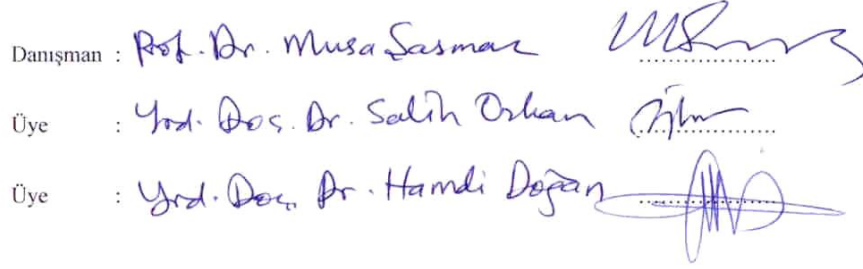 Danışman : Prof. Dr. Musa Şaşmaz
Üye : Yrd. Doç. Dr. Salih Orhan
Üye : Yrd. Doç. Dr. Hamdi Doğan